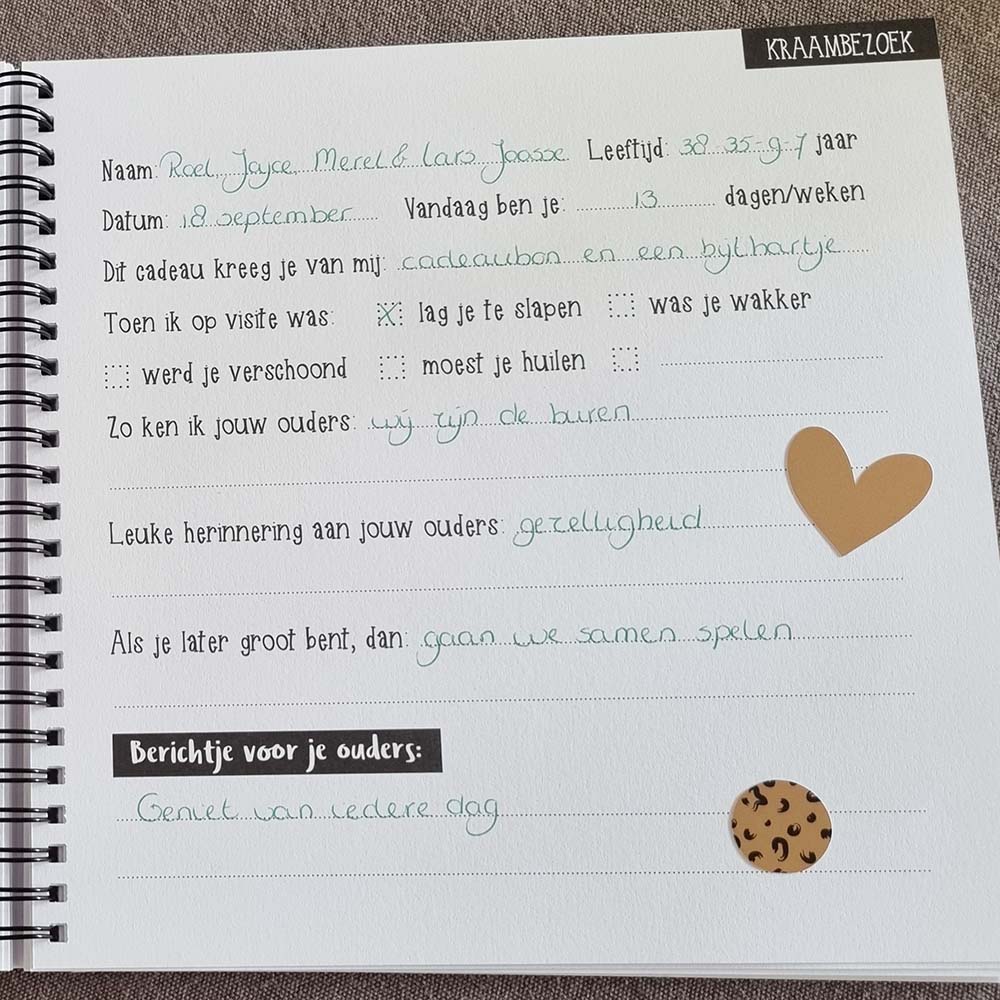 KRAAMBEZOEK
Naam: Roel, Joyce, Merel & Lars Joosse Leeftijd: 38 35-9-7 jaar
Datum: 18 september Vandaag ben je: 13 dagen/weken
Dit cadeau kreeg je van mij: cadeaubon en een bijtbartje
Toen ik op visite was: X lag je te slapen was je wakker
werd je verschoond moest je huilen
Zo ken ik jouw ouders: wij zijn de buren
Leuke herinnering aan jouw ouders: gezelligheid
Als je later groot bent, dan: gaan we samen spelen
Berichtje voor je ouders:
Geniet van iedere dag